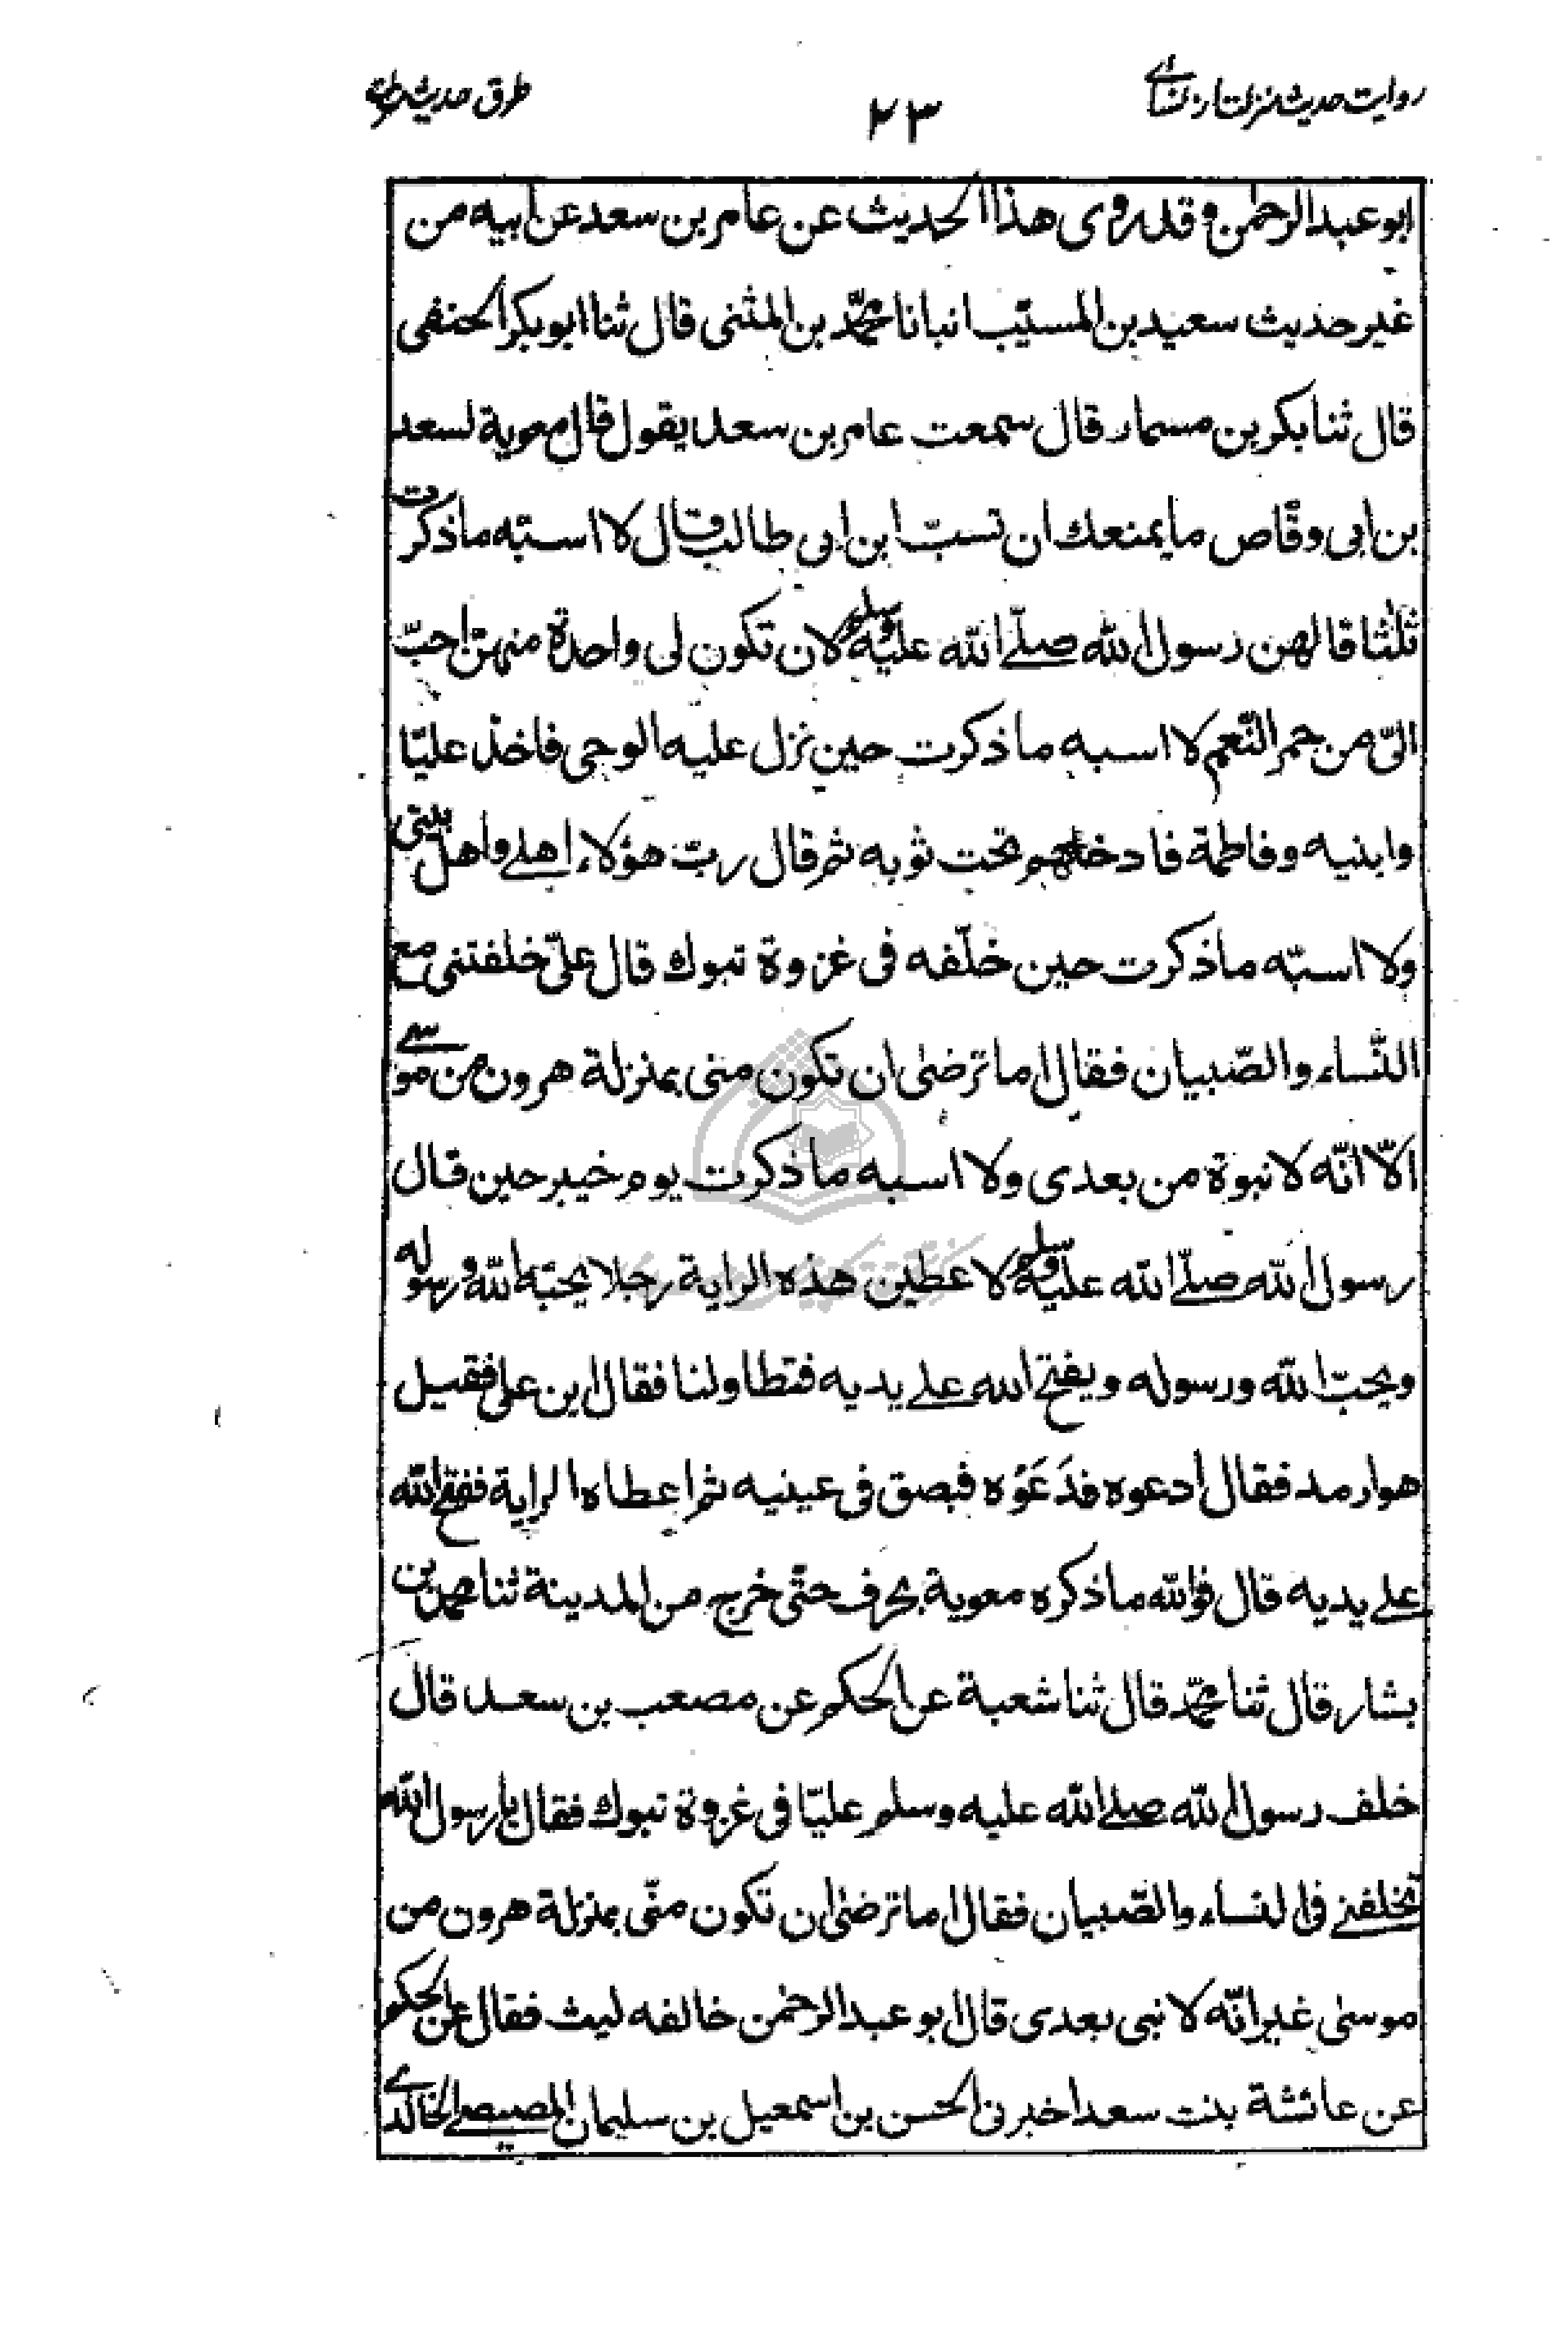 روایت حدیث منزلت از نسائے
۲۳
طرق حدیث منزلت
ابو عبد الرحمن وقد روى هذا الحديث عن عامر بن سعد عن ابيه من
غير حديث سعيد بن المسيّب انبانا محمّد بن المثنى قال ثنا ابو بكر الحنفى
قال ثنا بكر بن مسمار قال سمعت عامر بن سعد يقول قال معوية لسعد
بن ابى وقّاص ما يمنعك ان تسبّ ابن ابى طالب قال لا اسبّه ما ذكرت
ثلثا قالهن رسول الله صلّے الله عليه وسلم لان تكون لى واحدة منهنّ احبّ
الىّ من حمر النّعم لا اسبه ما ذكرت حين نزل عليه الوحى فاخذ عليّا
وابنيه وفاطمة فادخلهم تحت ثوبه ثم قال ربّ هؤلاء اهلے واهل بيتى
ولا اسبّه ما ذكرت حين خلّفه فى غزوة تبوك قال علىّ خلفتنى مع
النّساء والصّبيان فقال اما ترضىٰ ان تكون منى بمنزلة هرون من موسے
الّا انّه لا نبوة من بعدى ولا اسبه ما ذكرت يوم خيبر حين قال
رسول الله صلّے الله عليه وسلم لاعطين هذه الراية رجلا يحبّه الله ورسوله
ويحبّ الله ورسوله ويفتح الله علے يديه فتطاولنا فقال اين على فقيل
هو ارمد فقال ادعوه فدَعَوْه فبصق فى عينيه ثم اعطاه الراية ففتح الله
علے يديه قال فوالله ما ذكره معوية بحرف حتّى خرج من المدينة ثنا محمد بن
بشار قال ثنا محمّد قال ثنا شعبة عن الحكم عن مصعب بن سعد قال
خلف رسول الله صلے الله عليه وسلم عليّا فى غزوة تبوك فقال يا رسول الله
تخلفنے فى النساء والصّبيان فقال اما ترضىٰ ان تكون منّى بمنزلة هرون من
موسىٰ غير انّه لا نبى بعدى قال ابو عبد الرحمٰن خالفه ليث فقال عن الحكم
عن عائشة بنت سعد اخبرنى الحسن بن اسمعيل بن سليمان المصيصے الخالدے